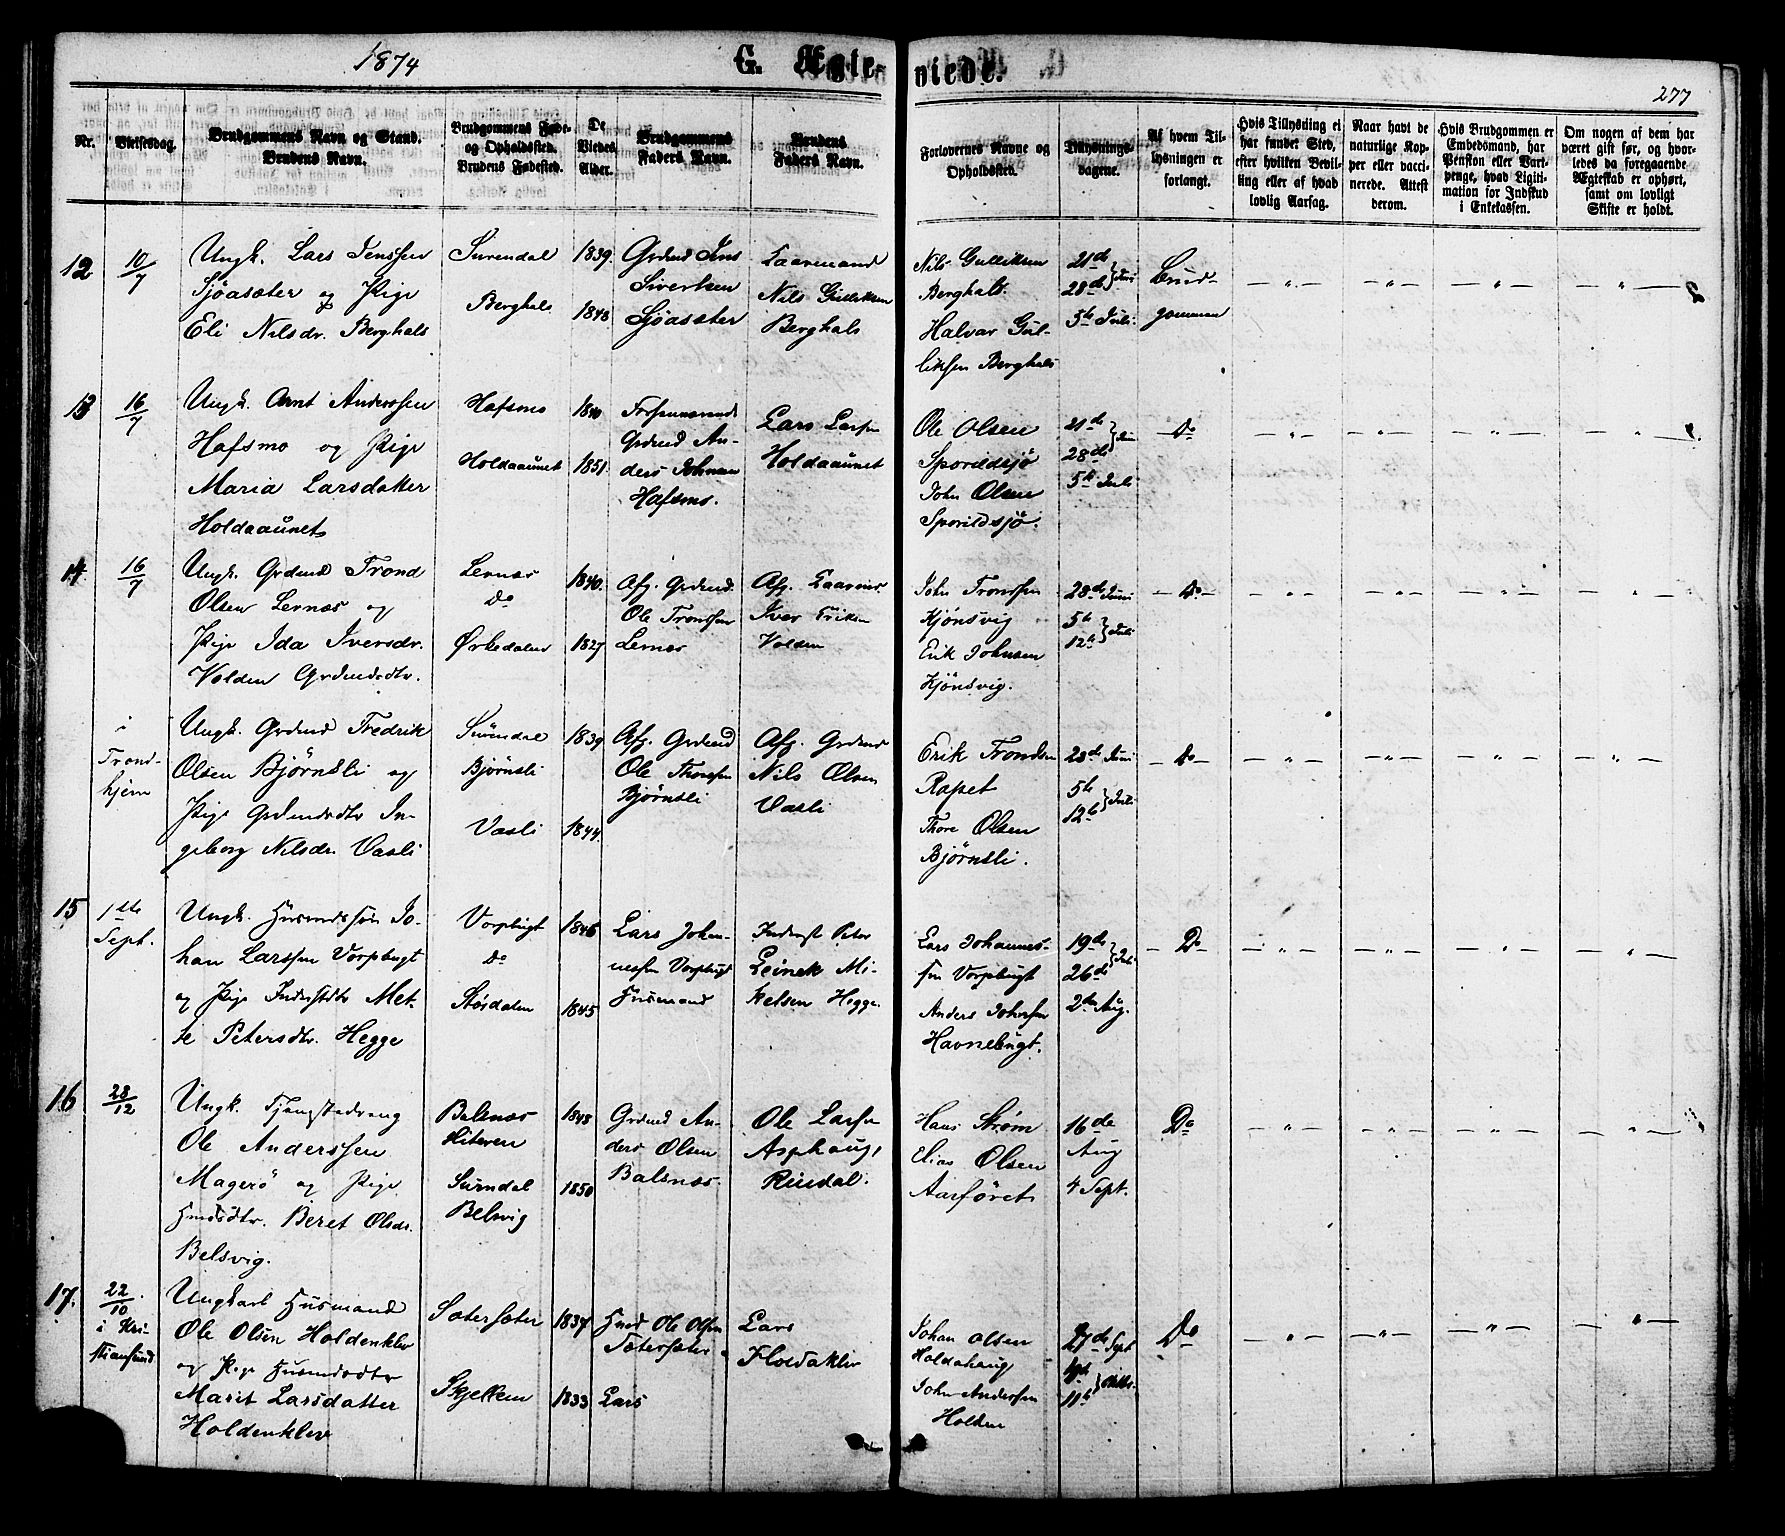 1874
G. Ægteviede.
277
Nr.
Vielsesdag.
Brudgommens Navn og Stand.
Brudens Navn.
Brudgommens Føde-
og Opholdssted.
Brudens Fødested.
De
Viedes
Alder.
Brudgommens
Faders Navn.
Brudens
Faders Navn.
Forlovernes Navne og
Opholdssted.
Tillysnings-
dagene.
Af hvem Til-
lysningen er
forlangt.
Hvis Tillysning ei
har fundet Sted,
efter hvilken Bevil-
ling eller af hvad
lovlig Aarsag.
Naar havt de
naturlige Kop-
per eller vacci-
nerede. Attest
derom.
Hvis Brudgommen er
Embedsmand, har
Pension eller Vart-
penge, hvad Ligiti-
mation for Indskud
i Enkekassen.
Om nogen af dem har
været gift før, og hvor-
ledes da foregaaende
Ægteskab er ophørt,
samt om lovligt
Skifte er holdt.
12
10/7
Ungk. Lars Jenssen
Sjöasæter og Pige
Eli Nilsdr. Berghals
Surendal
Berghals
1839.
1848
Grdmd Jens
Sivertsen
Sjöasæter
Laarmand
Nils Gulliksen
Berghals
Nils Gulliksen
Berghals.
Halvar Gul-
liksen Berghals
21de
28de } Juni
5te Juli.
Brud-
gommen
— " —
— " —
— " —
— " —
13
16/7
Ungk. Arnt Anderssen
Hafsmo og Pige
Maria Larsdatter
Holdaaunet
Hafsmo
Holdaaunet
1840
1851.
Grdmd An-
ders Johnsen
Hafsmo.
Lars Larsen
Holdaaunet
Ole Olsen
Sporildsjö
John Olsen
Sporildsjö.
21de
28de } Juni
5te Juli
— Do —
— " —
— " —
— " —
— " —
14
16/7
Ungk. Grdmd Trond
Olsen Lernæs og
Pige Ida Iversdr.
Volden Grdmdsdtr.
Lernæs
Do
Ørkedalen
1840.
1827
Afg. Grdmd.
Ole Tronssen
Lernæs
Afg. Laarm.
Iver Eriksen
Volden
John Tronssen
Kjönsvig
Erik Johnsen
Kjönsvig.
28de Juni
5te
12te } Juli
— Do —
— " —
— " —
— " —
— " —
i
Trond-
hjem
Ungk. Grdmd Fredrik
Olsen Björnsli og
Pige Grdmdsdtr In-
geborg Nilsdr. Vasli
Surendal
Björnsli
Vasli
1839
1844.
Afg. Grdmd
Ole Thoresen
Björnsli
Afg. Grdmd
Nils Olsen
Vasli
Erik Trondsen
Rapet
Thore Olsen
Björnsli.
28de Juni
5te
12te } Juli
— Do —
— " —
— " —
— " —
— " —
15
1ste
Sept.
Ungk. Husmdssön Jo-
han Larssen Vorpbugt
og Pige Inderstdtr Met-
te Petersdtr. Hegge
Vorpbugt
Do
Stördalen
1846
1845
Lars Johan-
nessen Vorpbugt
Husmand
Inderst Peter
Leinek Mi-
kelsen Hegge.
Lars Johannes-
sen Vorpbugt
Anders Johnsen
Havnebugt.
19de
26de } Juli
2den Aug.
— Do —
— " —
— " —
— " —
— " —
16
28/12
Ungk. Tjenstedreng
Ole Anderssen
Magerö og Pige
Hmdsdtr. Beret Olsdr.
Belsvig.
Balsnæs
Hitteren
Surndal
Belsvig
1848
1850
Grdmd An-
ders Olsen
Balsnæs
Ole Larsen
Asphaug,
Rindal.
Hans Strøm
Elias Olsen
Aarföret
16de
Aug
4 Sept.
Do
— " —
— " —
— " —
— " —
17.
22/10.
i Kri-
stiansund
Ungkarl Husmand
Ole Olsen Holdenklev
og Pige Husmdsdtr
Marit Larsdatter
Holdenklev
Sætersæter
Skjelken
1837
1833
Hmd Ole Olsen
Sætersæter
Lars
Lars
Holdaklev
Johan Olsen
Holdahaug
John Anderssen
Holden
27de Sept
11te
Do
— " —
— " —
— " —
— " —